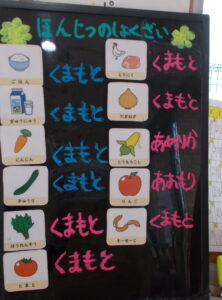 ほんじつのしょくざい
ごはん
くまもと
ぎゅうにゅう
くまもと
にんじん
くまもと
きゅうり
くまもと
ほうれんそう
くまもと
とまと
くまもと
とりにく
くまもと
たまねぎ
くまもと
とうもろこし
りんご
あおもり
そーせーじ
くまもと